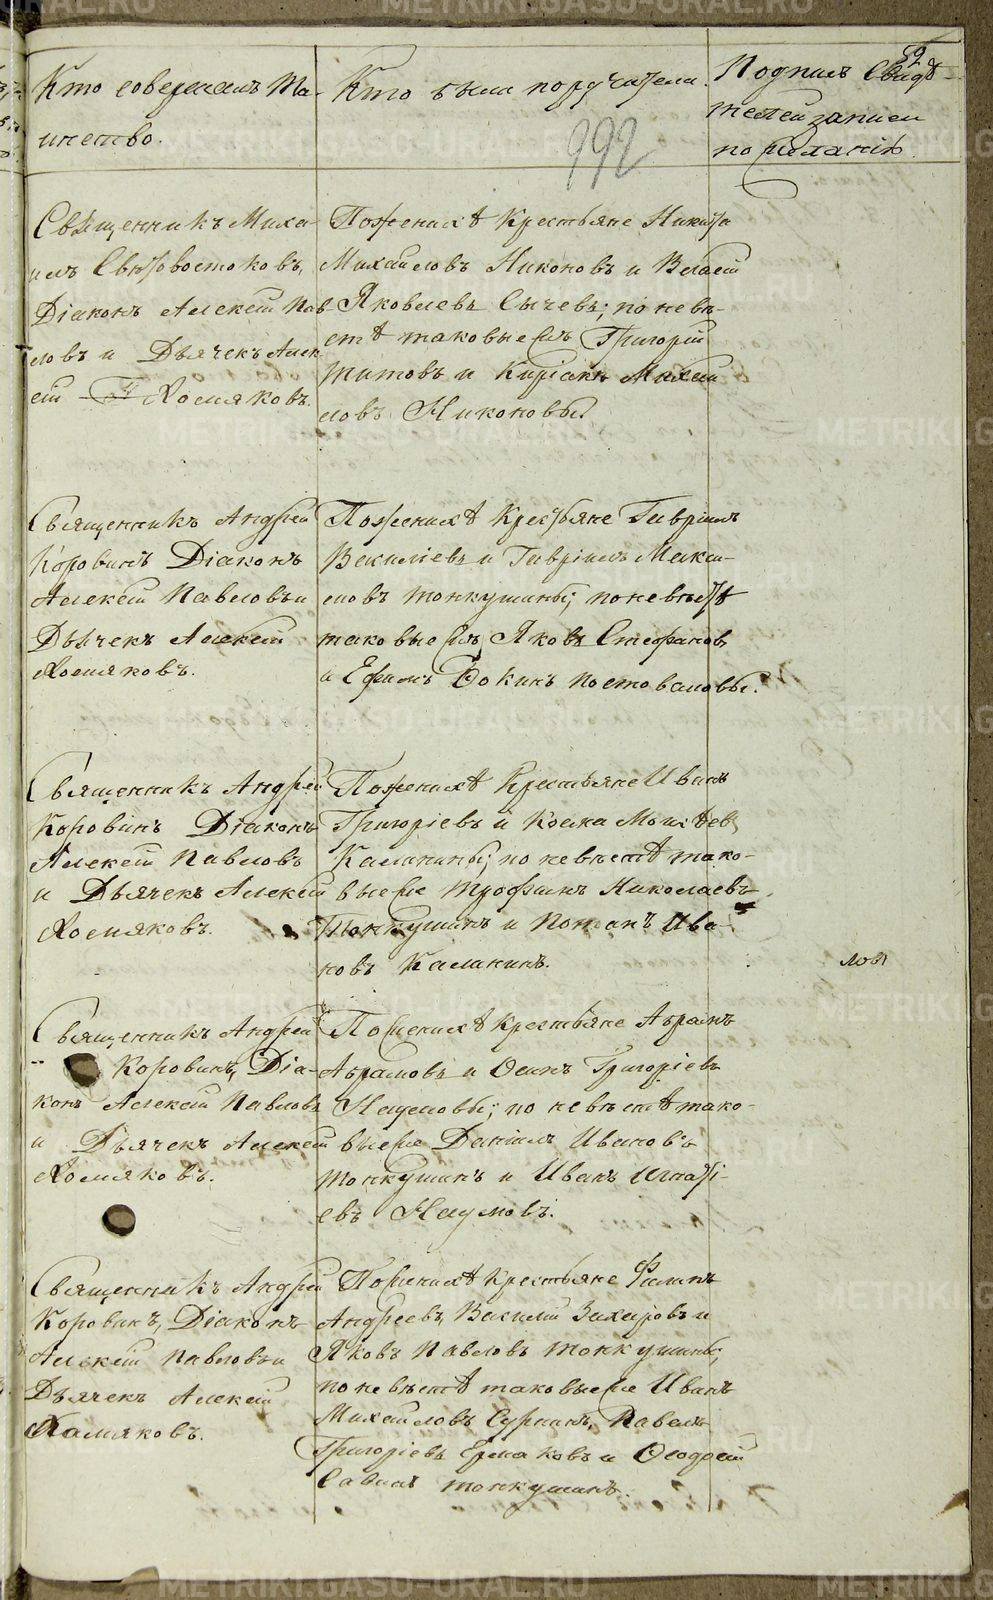 Кто совершалъ Та-
инство.
Кто были поручатели.
992
Подпись Свидѣ-
телей записи
по желанію.
Священникъ Миха-
илъ Свѣтовостоковъ,
Діаконъ Алексѣй Пав-
ловъ и Дьячекъ Алек-
сѣй Хомяковъ.
По женихѣ Крестьяне Никита
Михайловъ Никоновъ и Василій
Яковлевъ Сычевъ; по невѣ-
стѣ таковые жъ Григорій
Титовъ и Киріакъ Михай-
ловъ Никоновы.
Священникъ Андрей
Коровинъ Діаконъ
Алексѣй Павловъ и
Дьячекъ Алексѣй
Хомяковъ.
По женихѣ Крестьяне Гавріилъ
Василіевъ и Гавріилъ Макси-
мовъ Тонкушины; по невѣстѣ
таковые жъ Яковъ Стефановъ
и Ефимъ Ѳокинъ Постоваловы.
Священникъ Андрей
Коровинъ Діаконъ
Алексѣй Павловъ
и Дьячекъ Алексѣй
Хомяковъ.
По женихѣ Крестьяне Иванъ
Григоріевъ и Козма
Каланины; по невѣстѣ тако-
вые же Трофимъ Николаевъ
Тонкушинъ и Потапъ Ива-
новъ Каланинъ.
ловъ
Священникъ Андрей
Коровинъ, Діа-
конъ Алексѣй Павловъ
и Дьячекъ Алексѣй
Хомяковъ.
По женихѣ крестьяне Абрамъ
Абрамовъ и Осипъ Григоріевъ
Наумовы; по невѣстѣ тако-
вые же Даніилъ Ивановъ
Тонкушинъ и Иванъ Игнаті-
евъ Наумовъ.
Священникъ Андрей
Коровинъ, Діаконъ
Алексѣй Павловъ и
Дьячекъ Алексѣй
Хомяковъ.
По женихѣ крестьяне Филипъ
Андреевъ, Василій Захаровъ и
Яковъ Павловъ Тонкушины;
по невѣстѣ таковые же Иванъ
Михайловъ Сурнинъ, Павелъ
Григоріевъ Ермаковъ и Ѳеодосій
Савинъ Тонкушинъ.